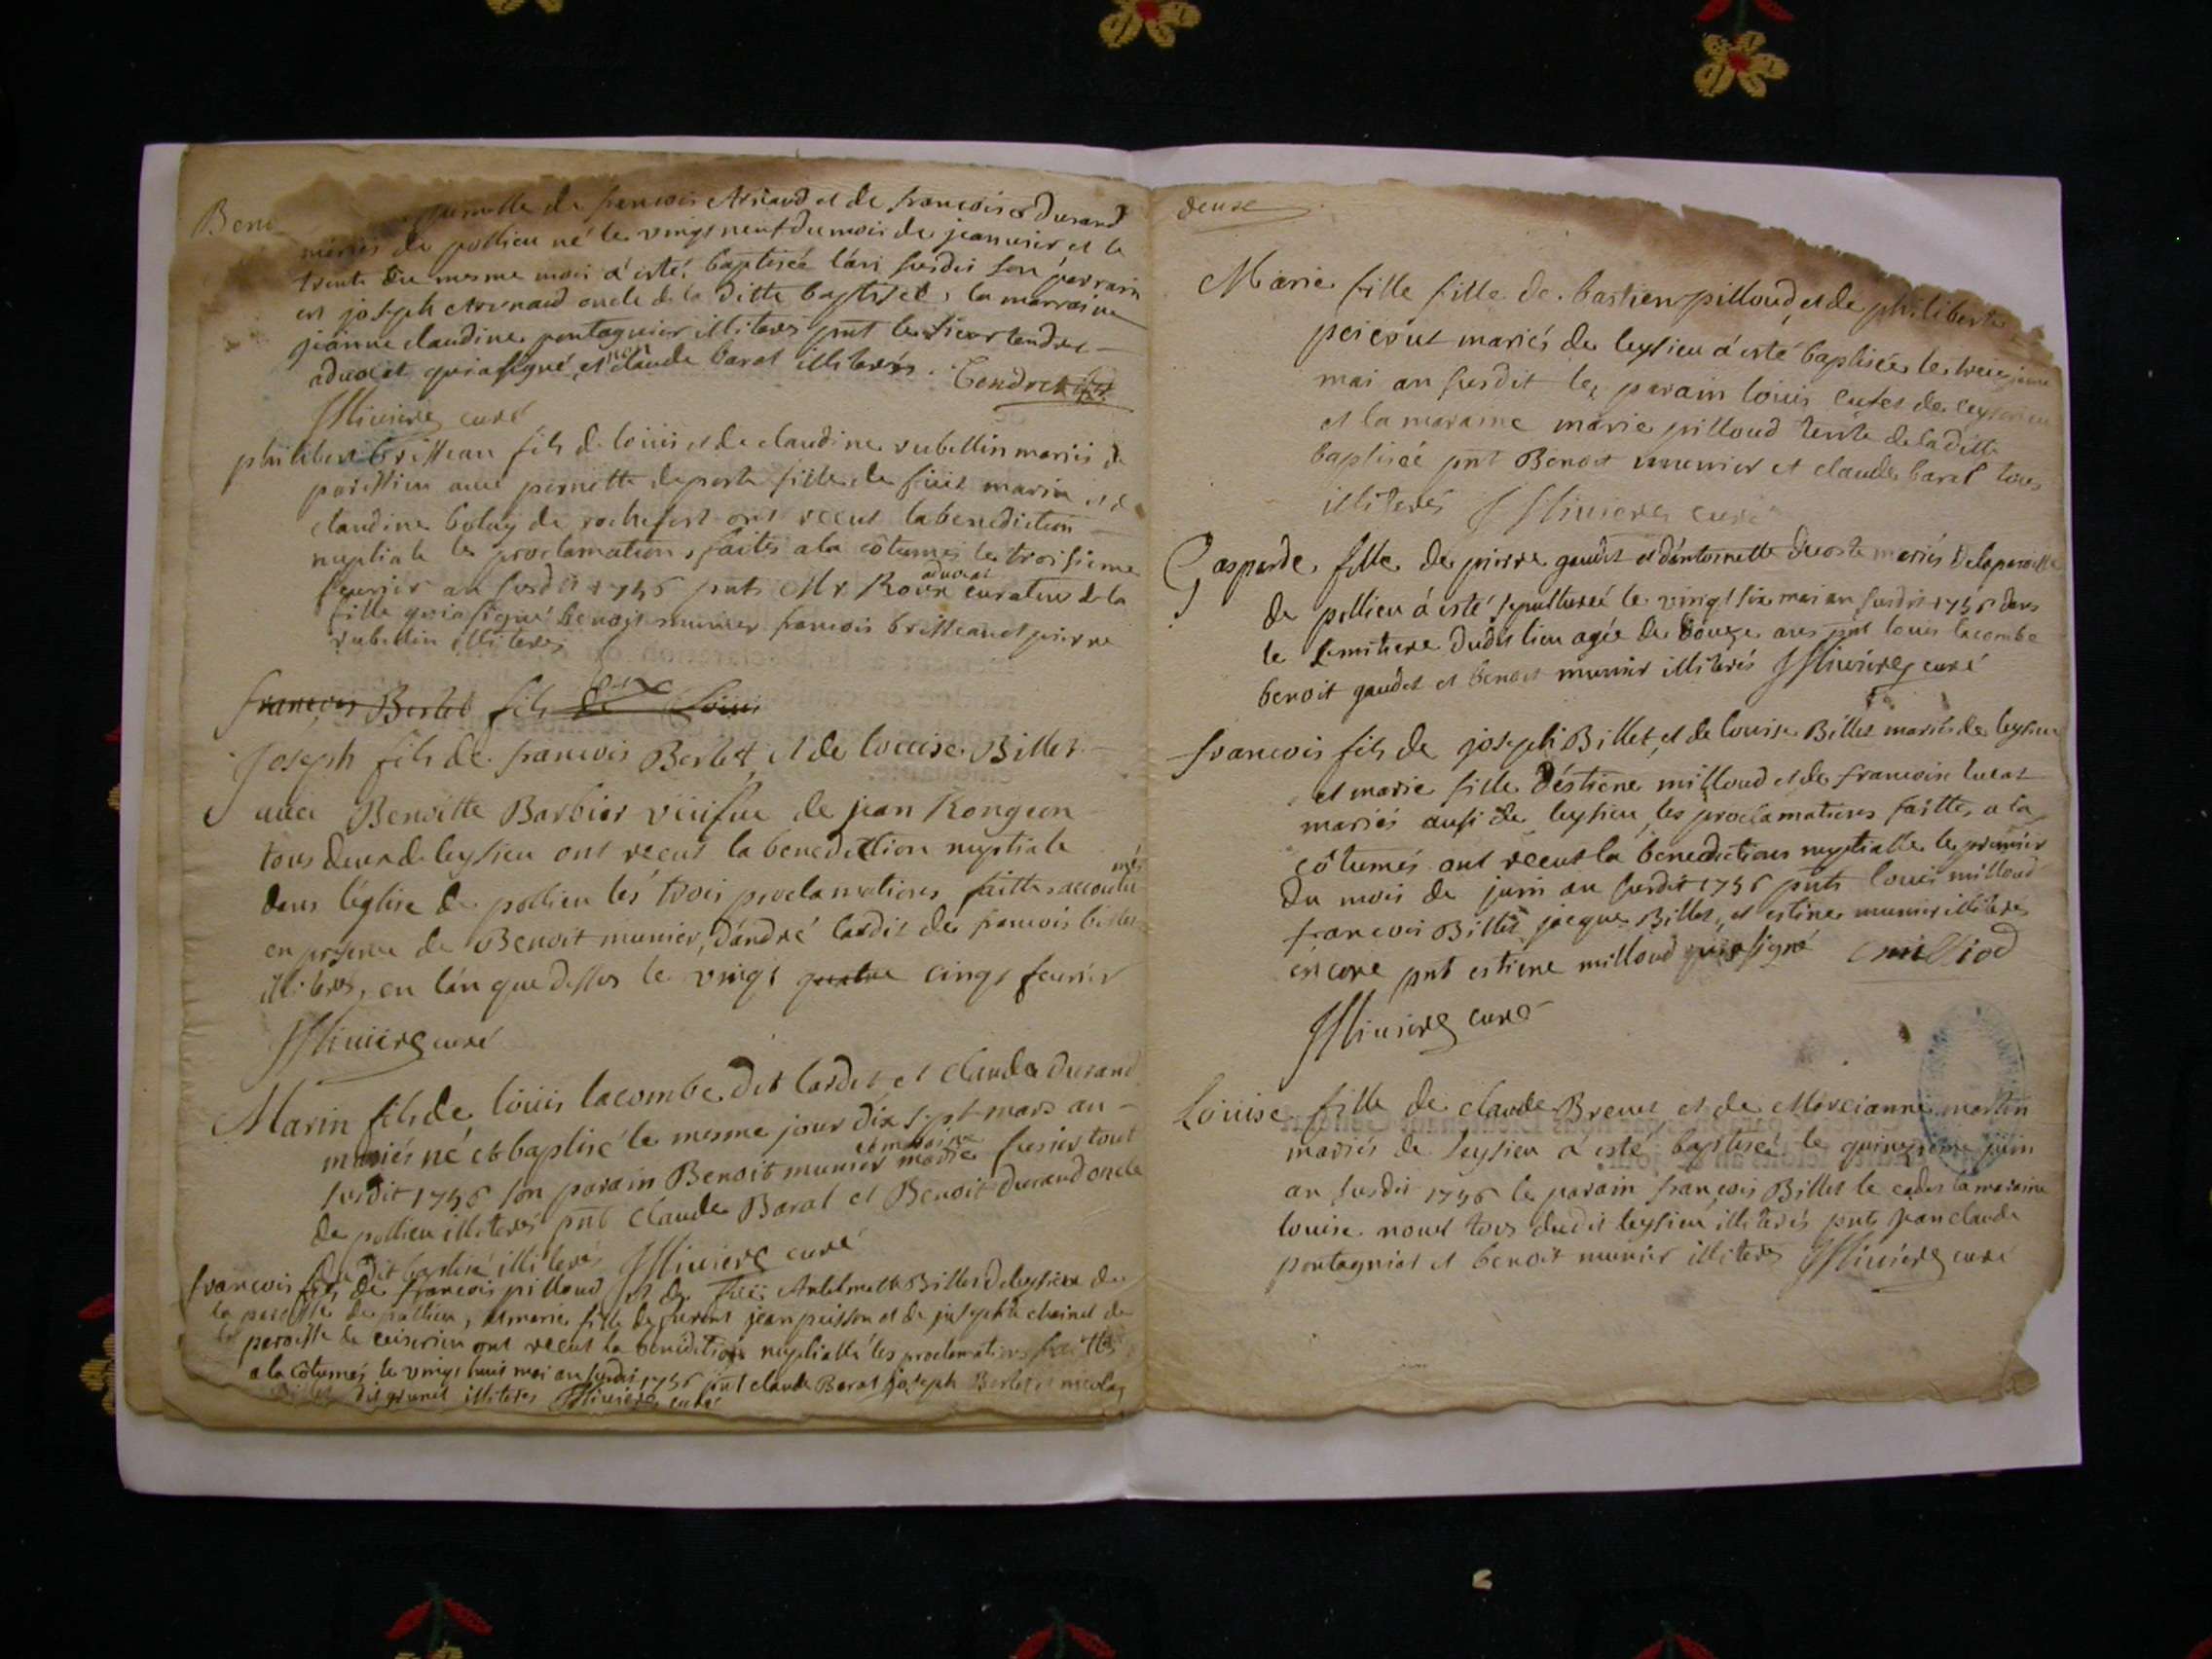 Beno
jumelle de francois Arnaud et de francoise Durand
mariés de pollieu né le vingt neuf du mois de januier et le
trente du mesme mois a esté baptiseé l'an susdit son parrain
est joseph Arnaud oncle de la ditte baptiseé, la marraine
jeanne claudine pontagnier illiterés pnt le sieur tendret
aduocat qui a signé, et non claude barat illiterés. Tendret
Riuiere curé
philibert britteau fils de louis et de claudine rubellin mariés de
auec pernette deporte fille de marin et de
claudine boluy de rochefort ont receut la benediction
nuptiale les proclamations faites a la côtumes le troisieme
feurier an susdit 1756 pnts Mr Roux aduocat curateur de la
fille qui a signé benoit munier francois britteau et pierre
rubellin illiteres
francois Berlet fils de Louis
Joseph fils de francois Berlet, et de louise Billet
auec Benoitte Barbier veufue de jean Rongeon
tous deux de leysieu ont receut la benediction nuptiale
dans l'église de pollieu les trois proclamations faittes accoutumés
en presence de Benoit munier, d'andré lardit de francois billet
illiterés, en l'an que dessus le vingt quatre cinqt feurier
Riuiere curé
Marin fils de louis lacombe dit lardet et claude durand
mariés né et baptisé le mesme jour dix sept mars an
susdit 1756 son parain Benoit munier et maraine marie tout
de pollieu illiterés pnt claude Barat et Benoit durand oncle
du dit baptisé illiterés Riuiere curé
francois fils de francois pilloud et de Antelmette Billet de leysieu de
la paroisse de pollieu, et marie fille de jean puisson et de josephte chainet de
la paroisse de ceiserieu ont receut la benediction nuptialle les proclamations faittes
a la côtumés le vingt huit mai an susdit 1756 pnt claude Barat joseph Berlet et nicolas
dit illiteres Riuiere curé
deuxe
Marie fille fille de bastien pilloud, et de philiberte
mariés de leysieu a esté baptiseé le
mai an susdit le parain louis de
et la maraine marie pilloud tente de la ditte
baptiseé pnt Benoit munier et claude barat tous
illiterés Riuiere curé
Gasparde fille de pierre gaudet et d'antoinette ducoste mariés de la paroisse
de pollieu a esté sepultureé le vingt six mai an susdit 1756 dans
le semitiere dudit lieu agée de douze ans pnt louis lacombe
benoit gaudet et benoit munier illiterés Riuiere curé
francois fils de joseph Billet, et de louise Billet mariés de leysieu
et marie fille d'estiene milloud et de francoise lucat
mariés ausi de leysieu, les proclamations faittes a la
côtumés ont receut la benedictions nuptialle le premier
du mois de juin an susdit 1756 pnts louis milloud
francois Billet jacque Billet, et estine munier illiteres
encore pnt estiene milloud qui a signé E milliod
Riuiere curé
Louise fille de claude Breuet et de martin
mariés de leysieu a esté baptiseé le quinzieme juin
an susdit 1756 le parain francois Billet le cadet la maraine
louise nouet tous dudit leysieu illiterés pnts jean claude
pontagnier et benoit munier illiteres Riuiere curé